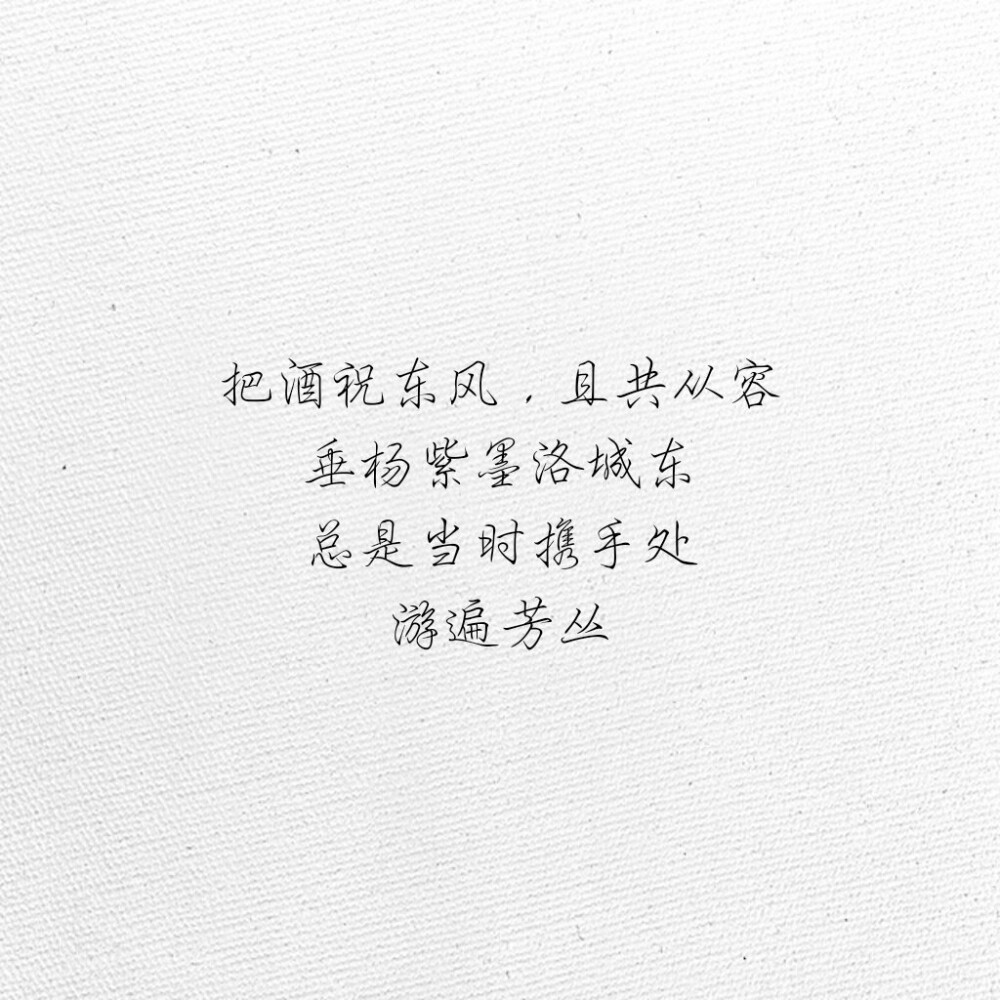 把酒祝东风，且共从容
垂杨紫墨洛城东
总是当时携手处
游遍芳丛